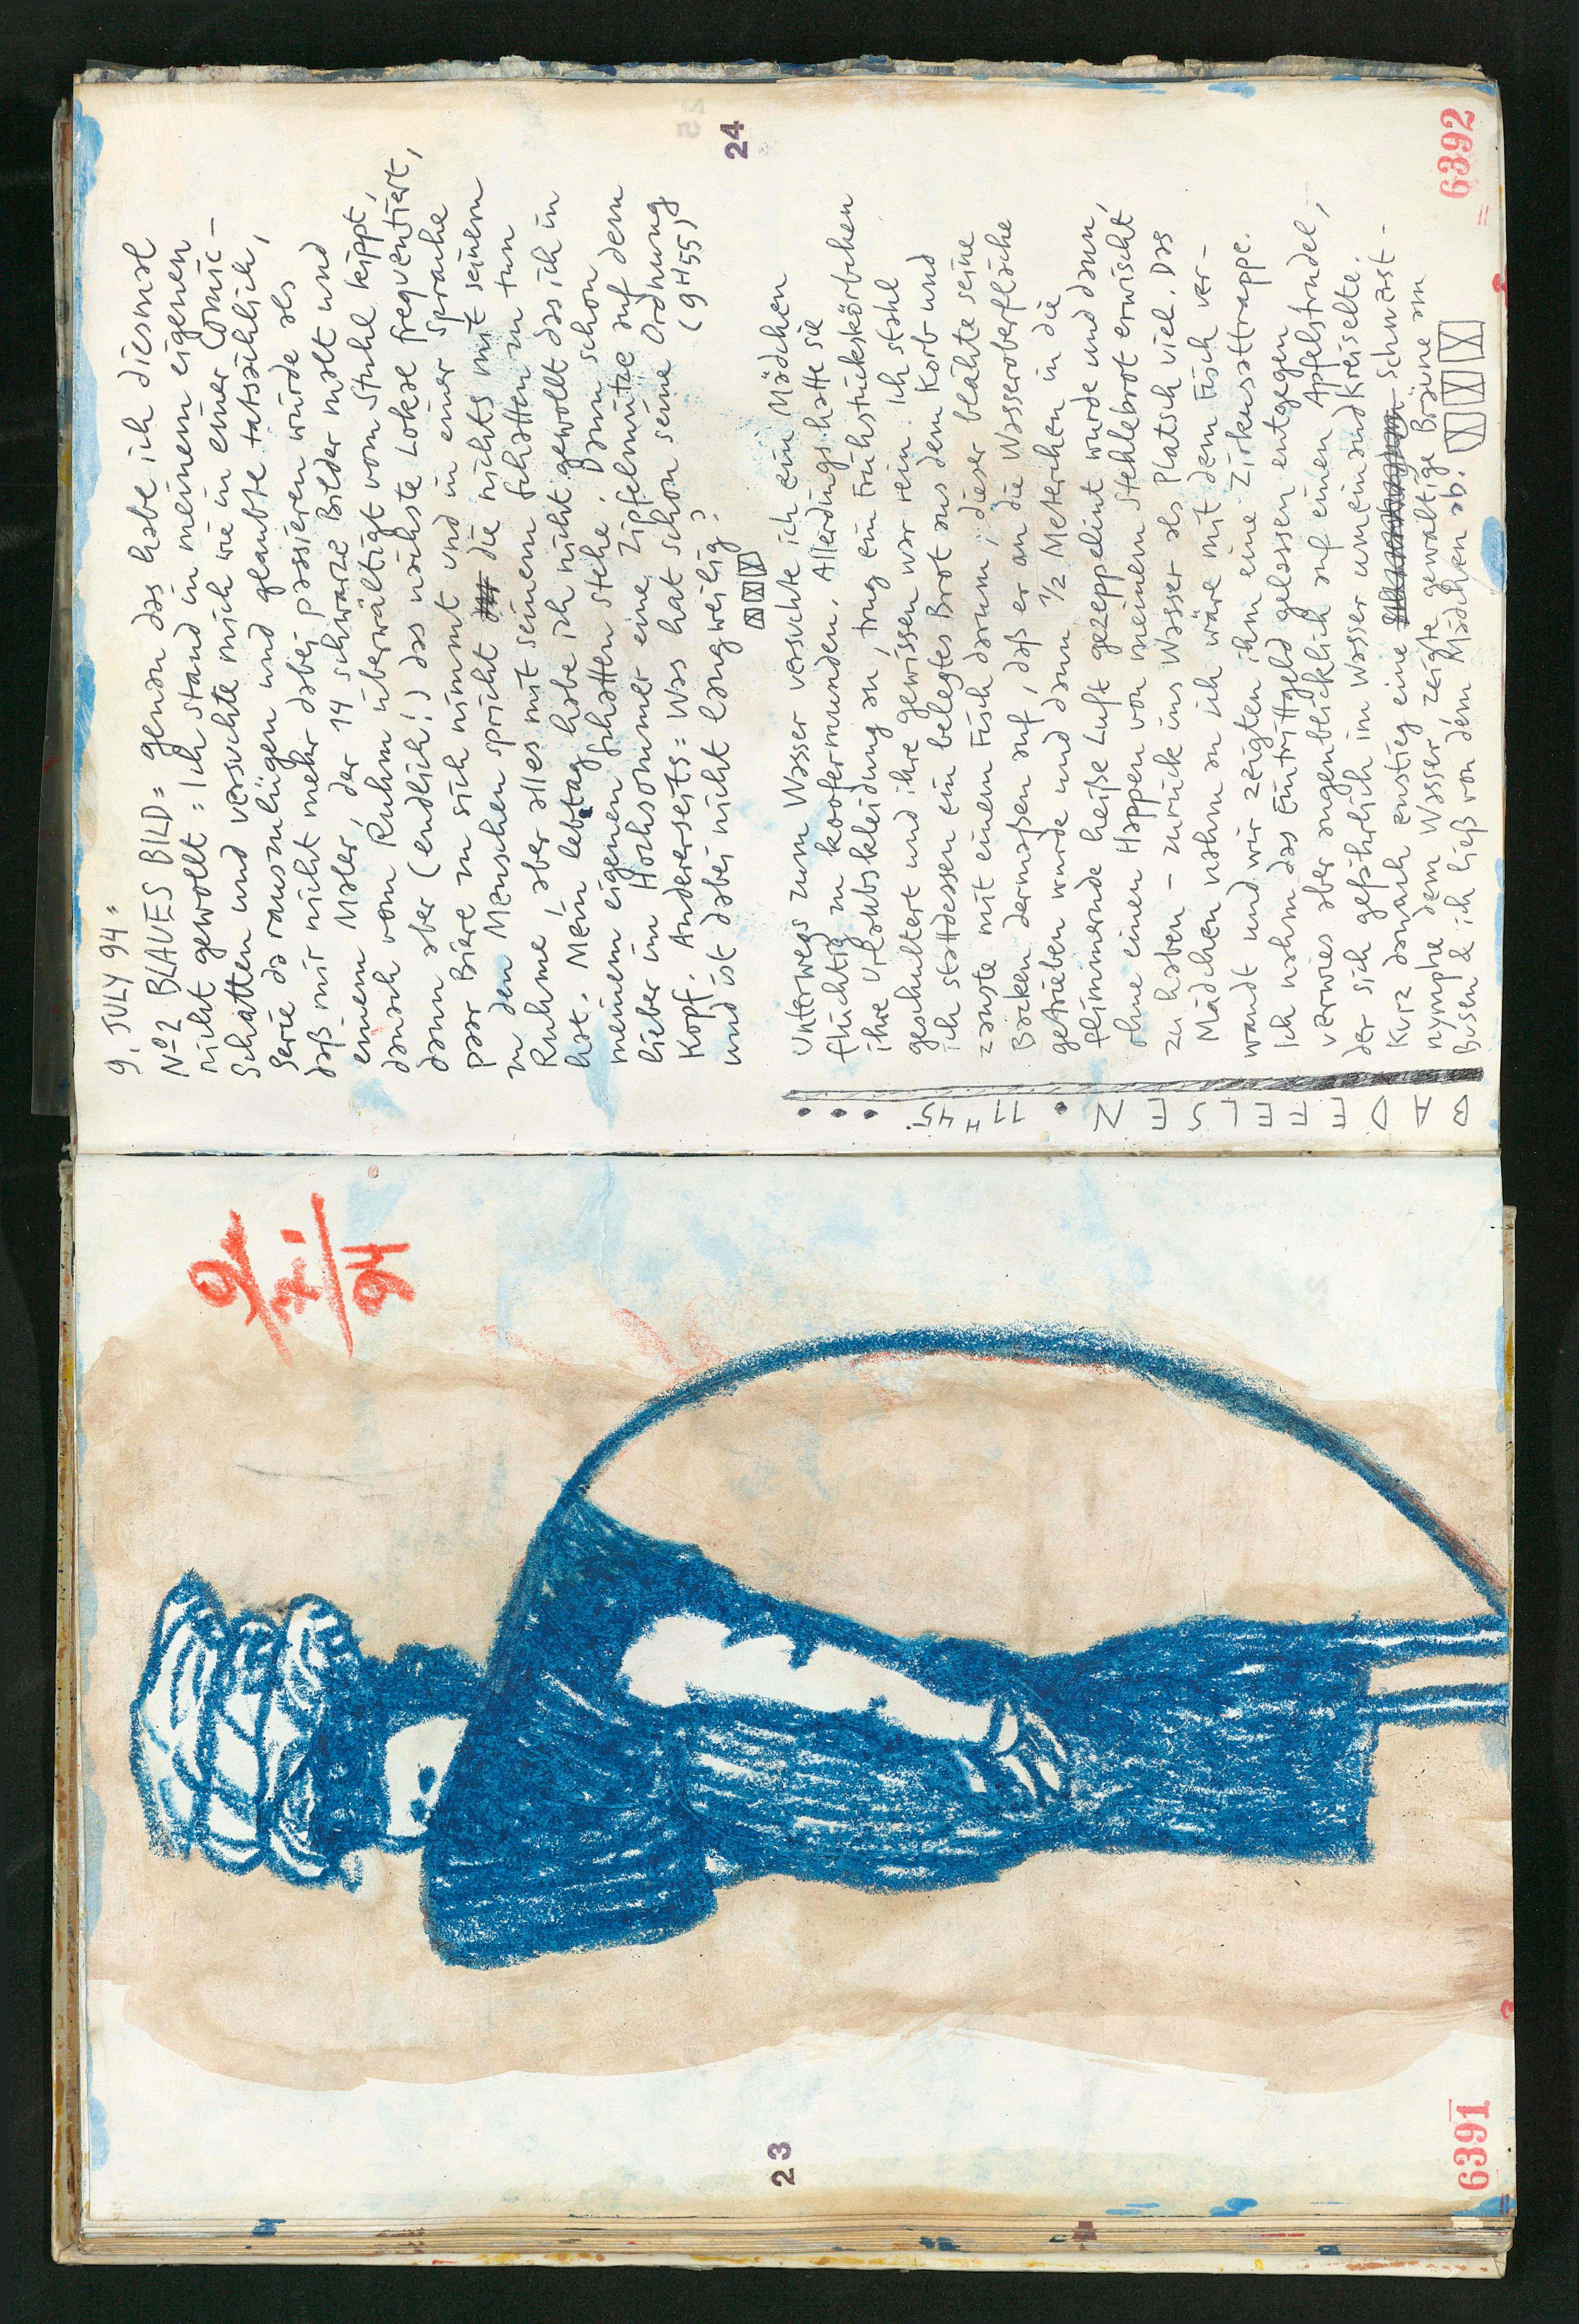 9/XI/94
23
6391
9. JULY 94 =
Nº2 BLAUES BILD = genau das habe ich diesmal
nicht gewollt = Ich stand in meinem eigenen
Schatten und versuchte mich wie in einer Comic-
Serie da rauszulügen und glaubte tatsächlich,
daß mir nicht mehr dabei passieren würde als
einem Maler, der 14 schwarze Bilder malt und
danach vom Ruhm überwältigt vom Stuhl kippt,
dann aber (endlich!) das nächste Lokal frequentiert,
paar Biere zu sich nimmt und in einer Sprache
zu den Menschen spricht die nichts mit seinem
Ruhme, aber alles mit seinem Schatten zu tun
hat. Mein Lebtag habe ich nicht gewollt daß ich in
meinem eigenen Schatten stehe. Dann schon
lieber im Hochsommer eine Zipfelmütze auf dem
Kopf. Andererseits = Was hat schon seine Ordnung
und ist dabei nicht langweilig? (9H55)
24
Unterwegs zum Wasser versuchte ich ein Mädchen
flüchtig zu koofermunden. Allerdings hatte sie
ihre Urlaubskleidung an, trug ein Frühstückskörbchen
geschultert und ihre gewissen war rein. Ich stahl
ich stattdessen ein belegtes Brot aus dem Korb und
zauste mit einem Fisch darum, dieser blähte seine
Backen dermaßen auf, daß er an die Wasseroberfläche
getrieben wurde und dann 1/2 Meterchen in die
flimmernde heiße Luft gezeppelint wurde und dann,
ohne einen Happen von meinem Stehlebrot erwischt
zu haben - zurück ins Wasser als Platsch viel. Das
Mädchen nahm an ich wäre mit dem Fisch ver-
wandt und wir zeigten ihm eine Zirkusattrappe.
Ich nahm das Eintrittgeld gelassen entgegen
verwies aber augenblicklich auf einen Apfelstrudel,
der sich gefährlich im Wasser umeinandkreiselte.
Kurz danach enstieg eine Schwarst-
nymphe dem Wasser zeigte gewaltige Bräune am
Busen & ich ließ von dem Mädchen ab.
BADEFELSEN. 11H45.
6392